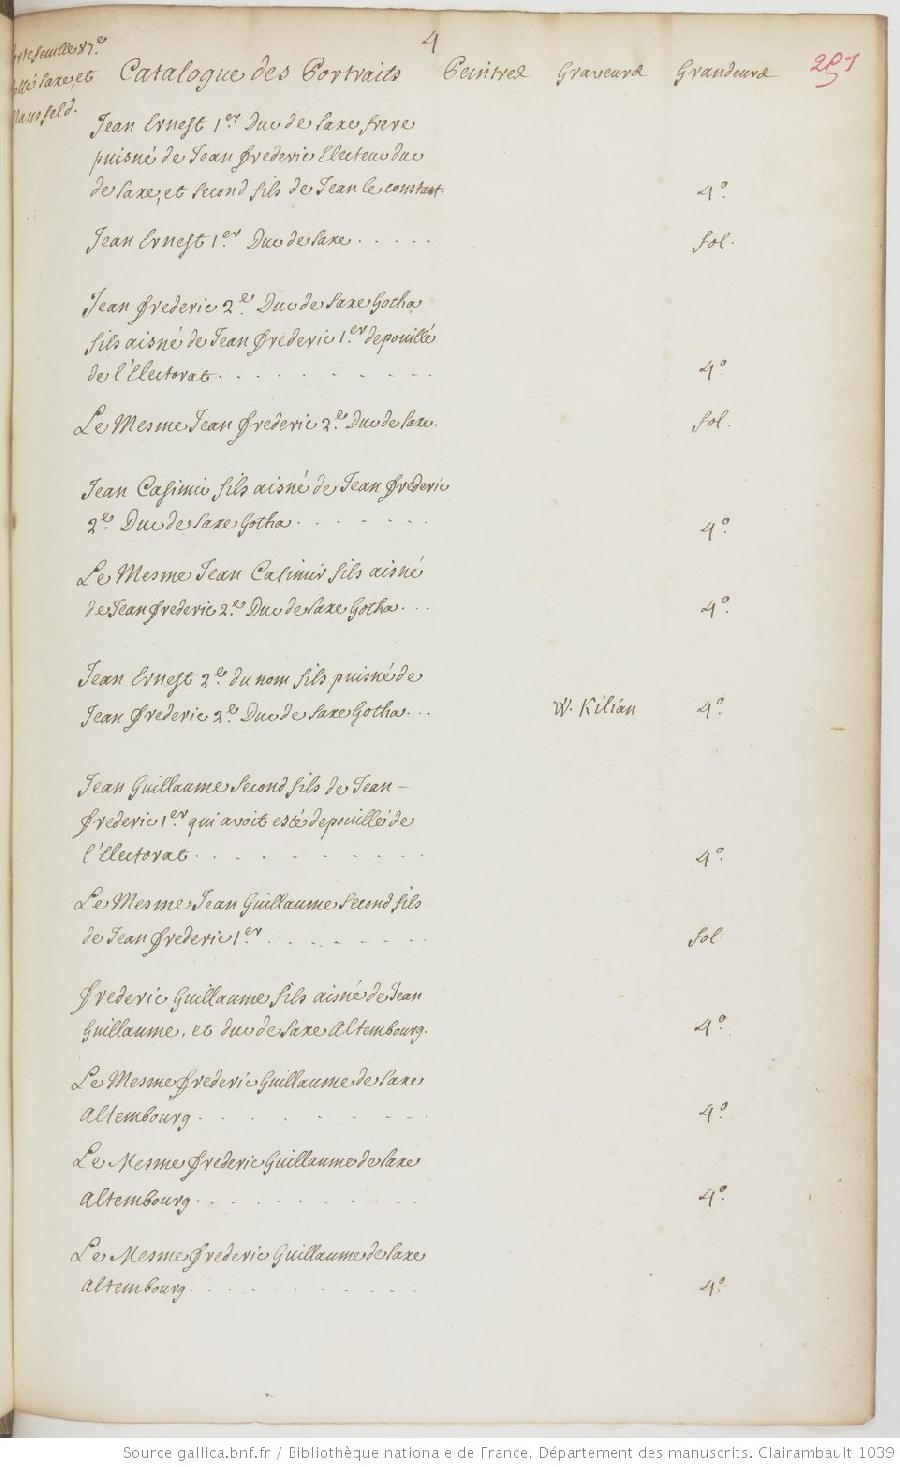 4
Portefeuille 87.e
cotté Saxe, et
Mansfeld.
Catalogue des Portraits Peintres Graveurs Grandeurs
Jean Ernest 1.er Duc de Saxe frere
puisné de Jean frederic Electeur duc
de Saxe, et second fils de Jean le constant. 4.o
Jean Ernest 1.er Duc de Saxe . . . . . fol.
Jean frederic 2.e Duc de Saxe Gotha
fils aisné de Jean frederic 1.er depouillé
de l'Electorat . . . . . . . . 4.o
Le Mesme Jean frederic 2.e Duc de Saxe. fol.
Jean Casimir fils aisné de Jean frederic
2.e Duc de Saxe Gotha . . . . . 4.o
Le Mesme Jean Casimir fils aisné
de Jean frederic 2.e Duc de Saxe Gotha . . . 4.o
Jean Ernest 2.e du nom fils puisné de
Jean frederic 2.e Duc de Saxe Gotha . . . W. Kilian 4.o
Jean Guillaume second fils de Jean-
frederic 1.er qui avoit esté depouillé de
l'Electorat . . . . . . . . . 4.o
Le Mesme Jean Guillaume second fils
de Jean frederic 1.er . . . . . . fol
frederic Guillaume fils aisné de Jean
Guillaume, et duc de Saxe Altembourg. 4.o
Le Mesme frederic Guillaume de Saxe
altembourg . . . . . . . . . 4.o
Le Mesme frederic Guillaume de Saxe
altembourg . . . . . . . . . 4.o
Le Mesme frederic Guillaume de Saxe
altembourg . . . . . . . . . 4.o
Source gallica.bnf.fr / Bibliothèque nationale de France. Département des manuscrits. Clairambault 1039